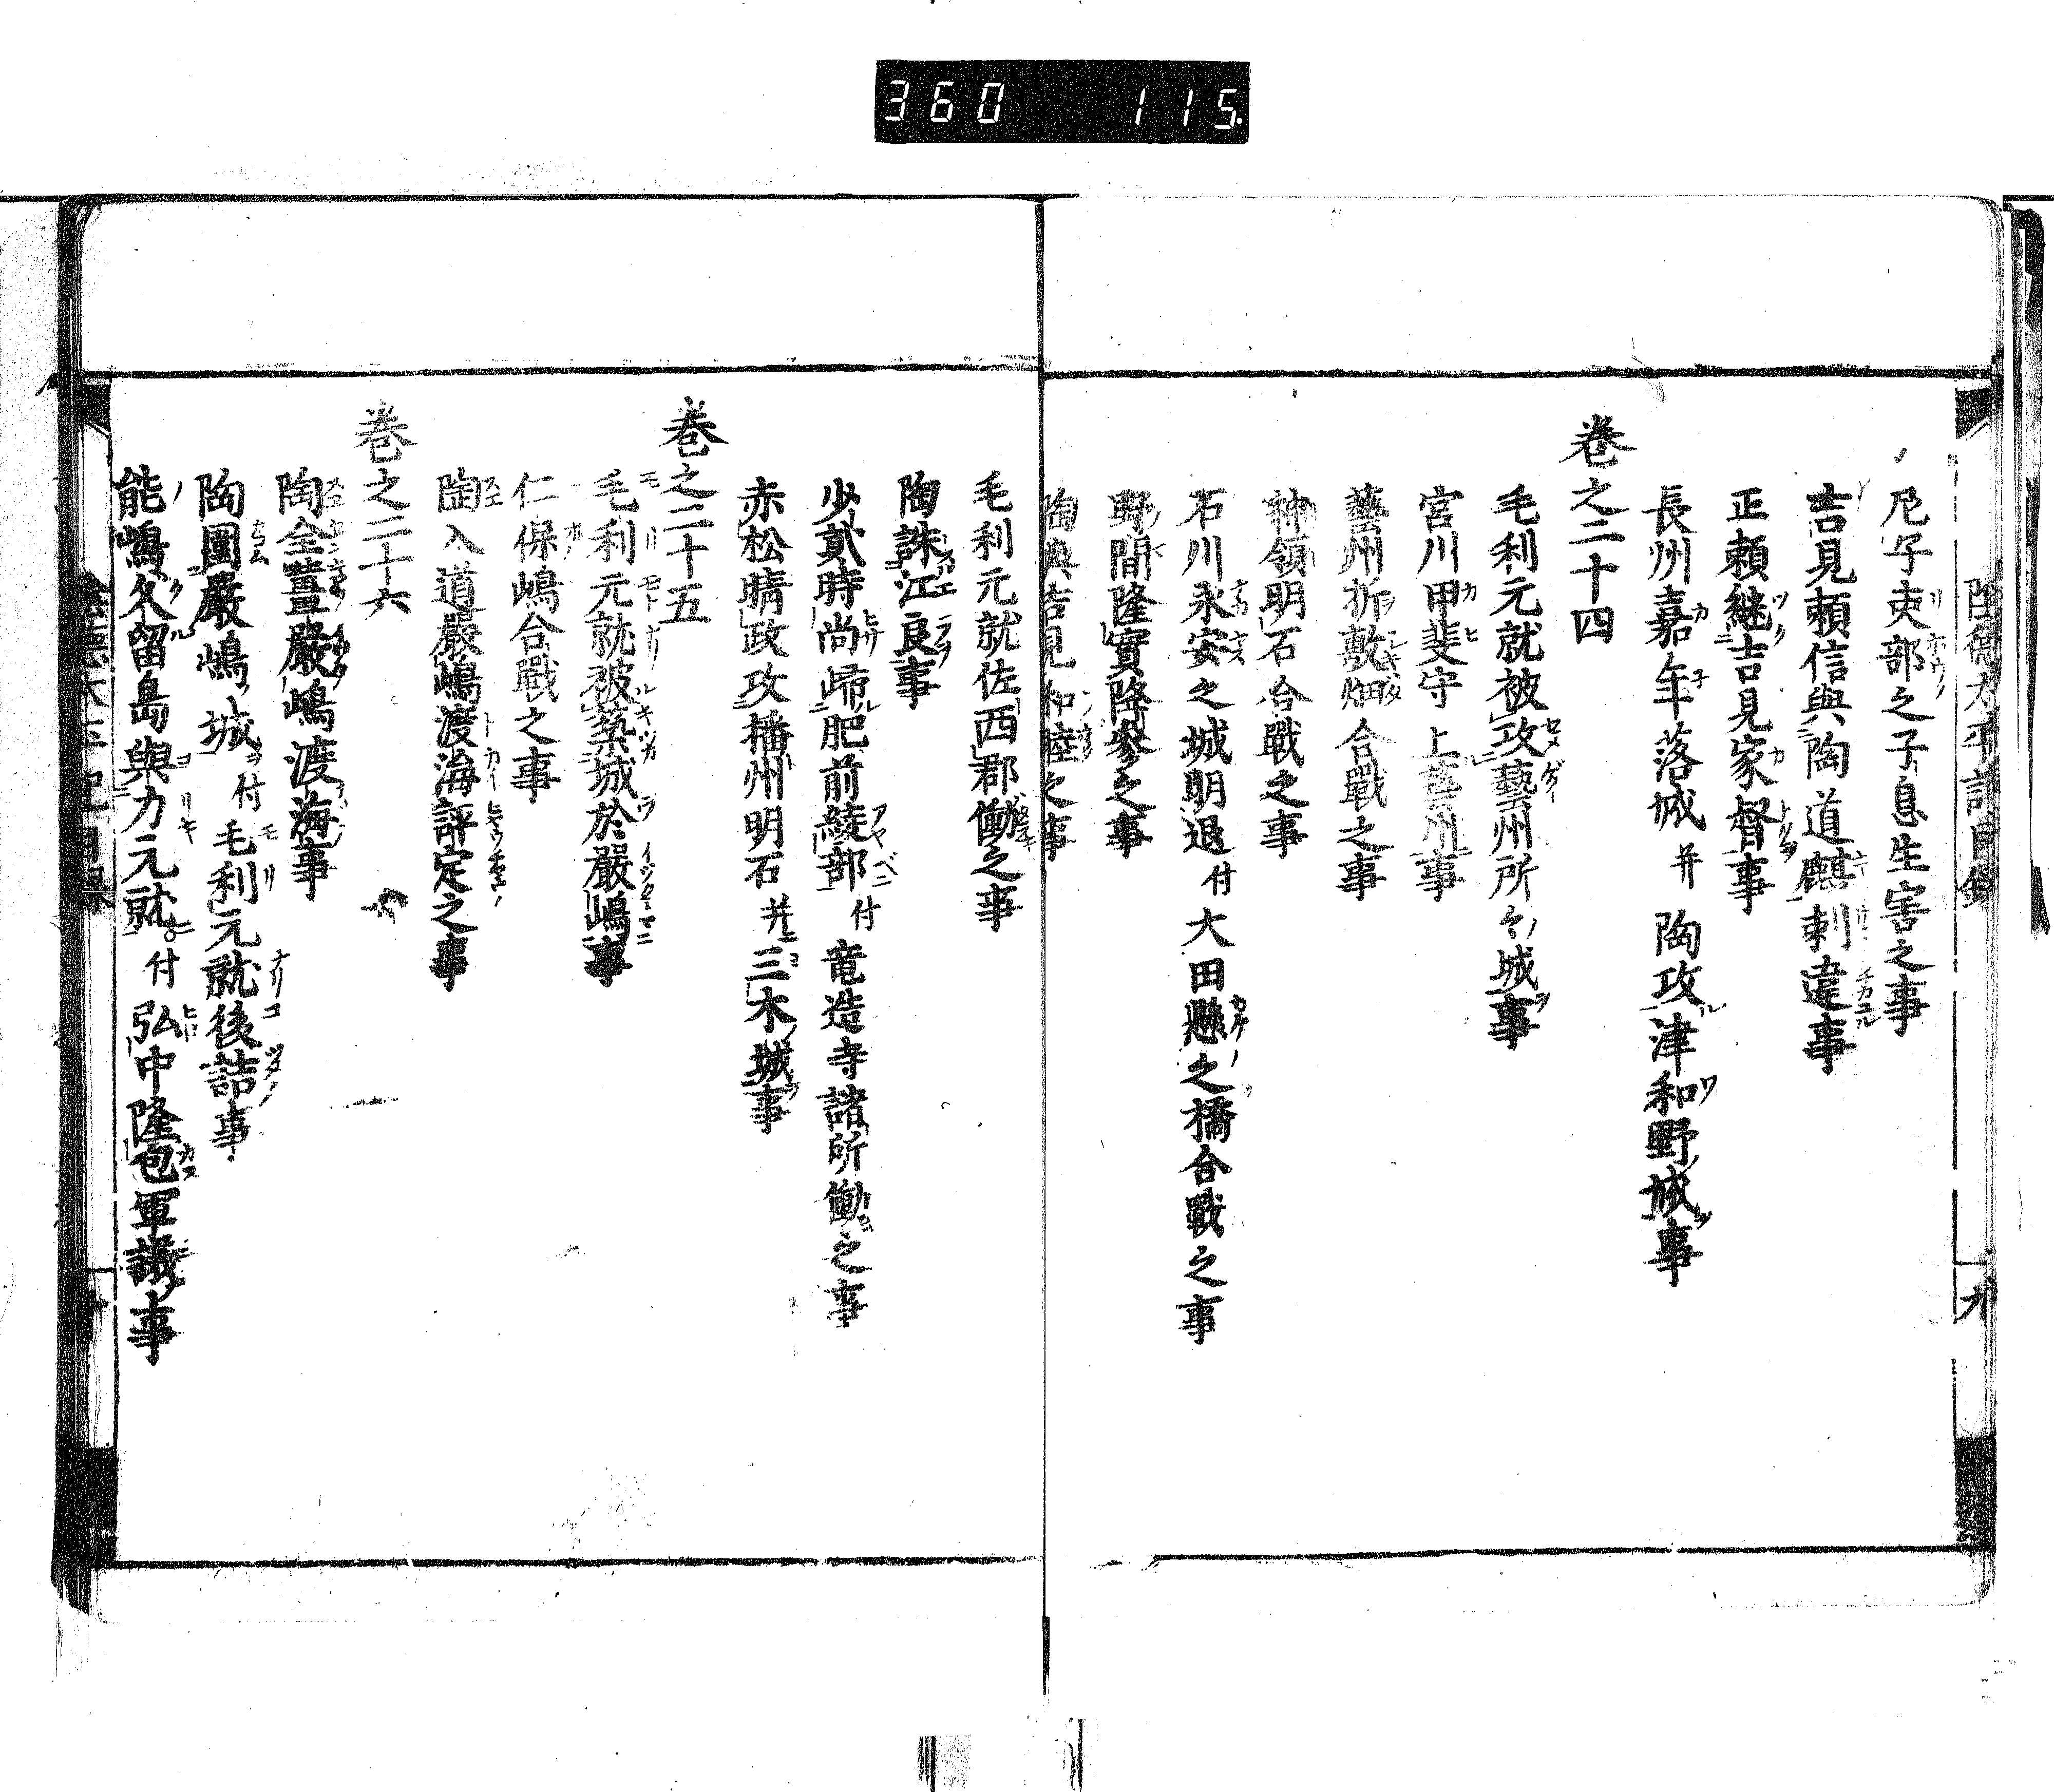 360 115
尼子吏部之子息生害之事
吉見頼信與陶道麒刺違事
正頼継吉見家督事
長州嘉年落城并陶攻津和野城事
巻之二十四
毛利元就被攻藝州所々城事
宮川甲斐守上藝州事
藝州折敷畑合戰之事
神領明石合戰之事
石川永安之城明退付大田懸之橋合戰之事
野間隆實降参之事
陶與吉見和睦之事
毛利元就佐西郡働之事
陶誅江良事
少貳時尚歸肥前綾部付竜造寺諸所働之事
赤松晴政攻播州明石并三木城事
巻之二十五
毛利元就被築城於嚴嶋事
仁保嶋合戰之事
陶入道嚴嶋渡海評定之事
巻之二十六
陶全薑嚴嶋渡海事
陶圍嚴嶋城付毛利元就後詰事
能嶋久留島與力元就付弘中隆包軍議事